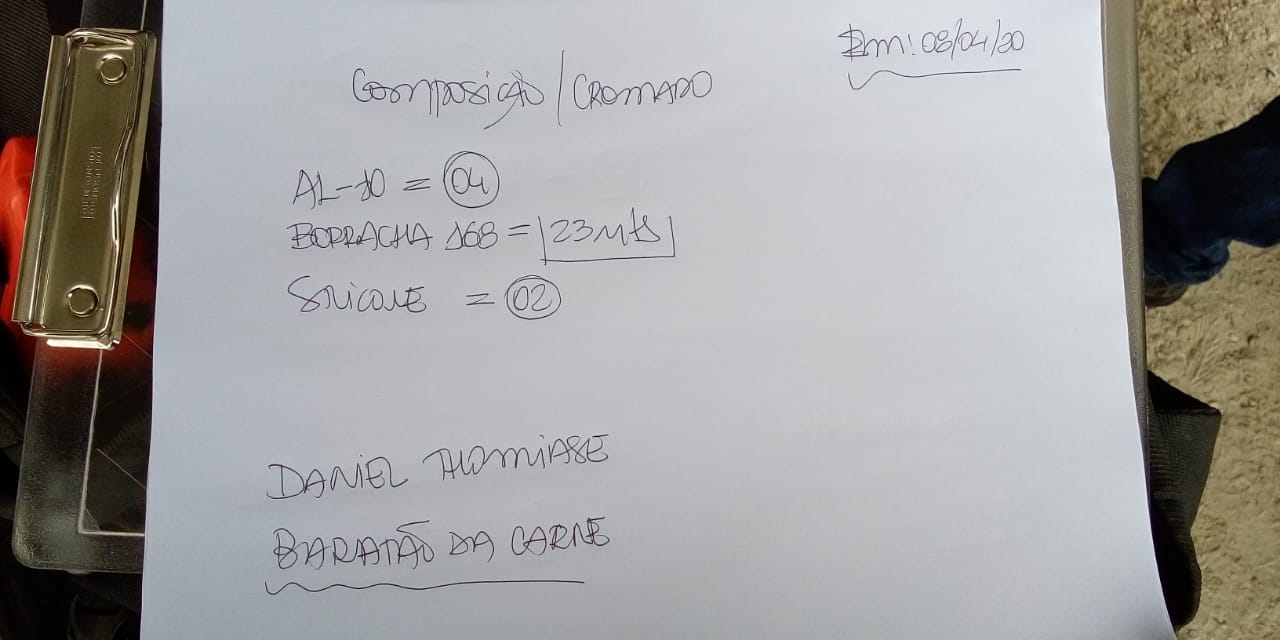 Em: 08/04/20
Composição/CROMADO
AL-10 = 04
BORRACHA 168 = 23 Mts
Silicone = 02
DANIEL
BARATÃO DA CARNE